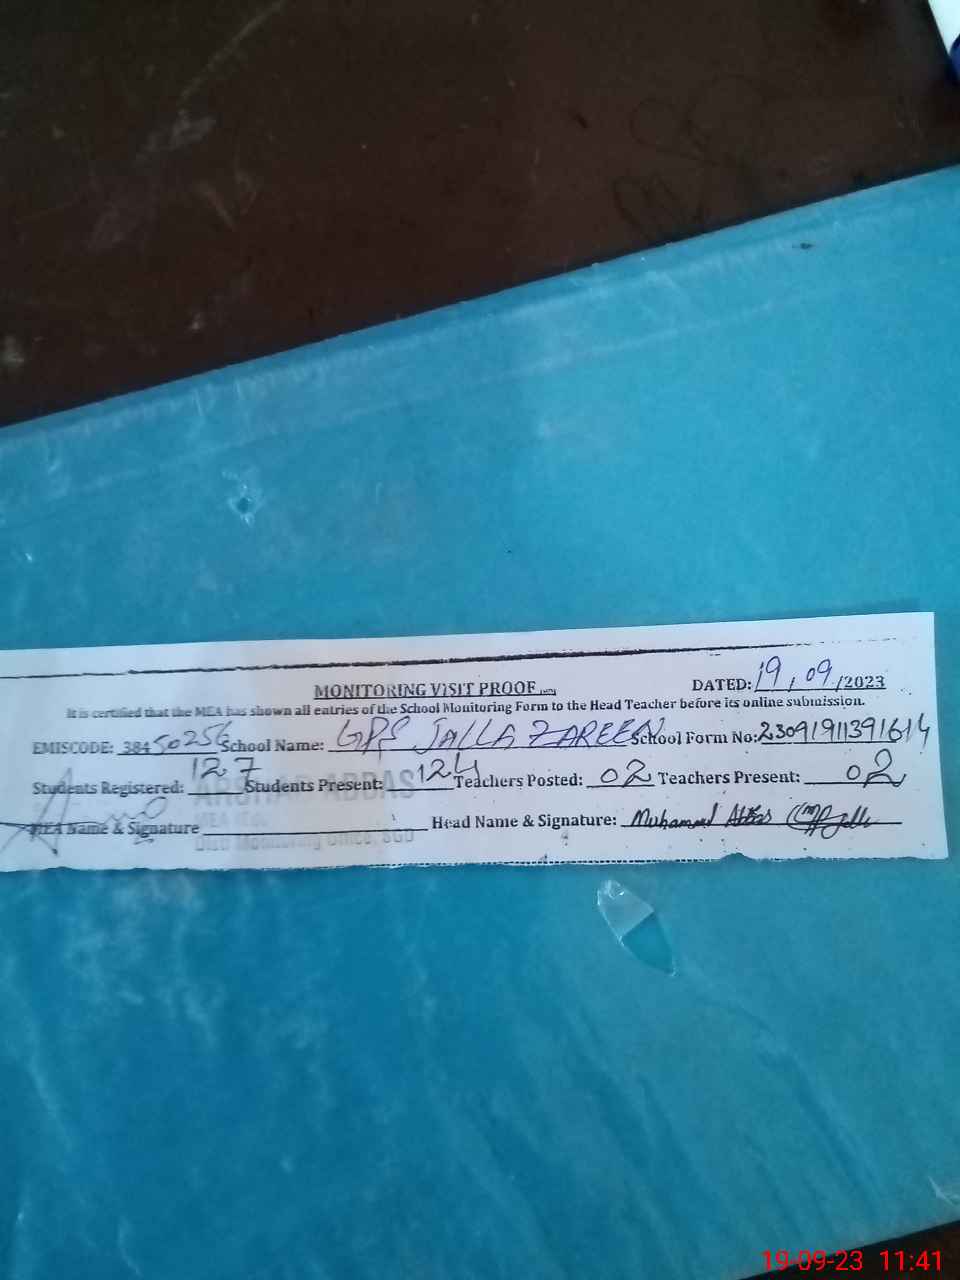 MONITORING VISIT PROOF
DATED: 19/09/2023
It is certified that the MEA has shown all entries of the School Monitoring Form to the Head Teacher before its online submission.
EMISCODE: 38450256 School Name: GPS JALLA ZAREEN School Form No: 23091911391614
Students Registered: 127 Students Present: 124 Teachers Posted: 02 Teachers Present: 02
ARSHAD ABBAS
MEA Name & Signature Head Name & Signature: Muhammad
Distt Monitoring Office, SGD
19-09-23 11:41